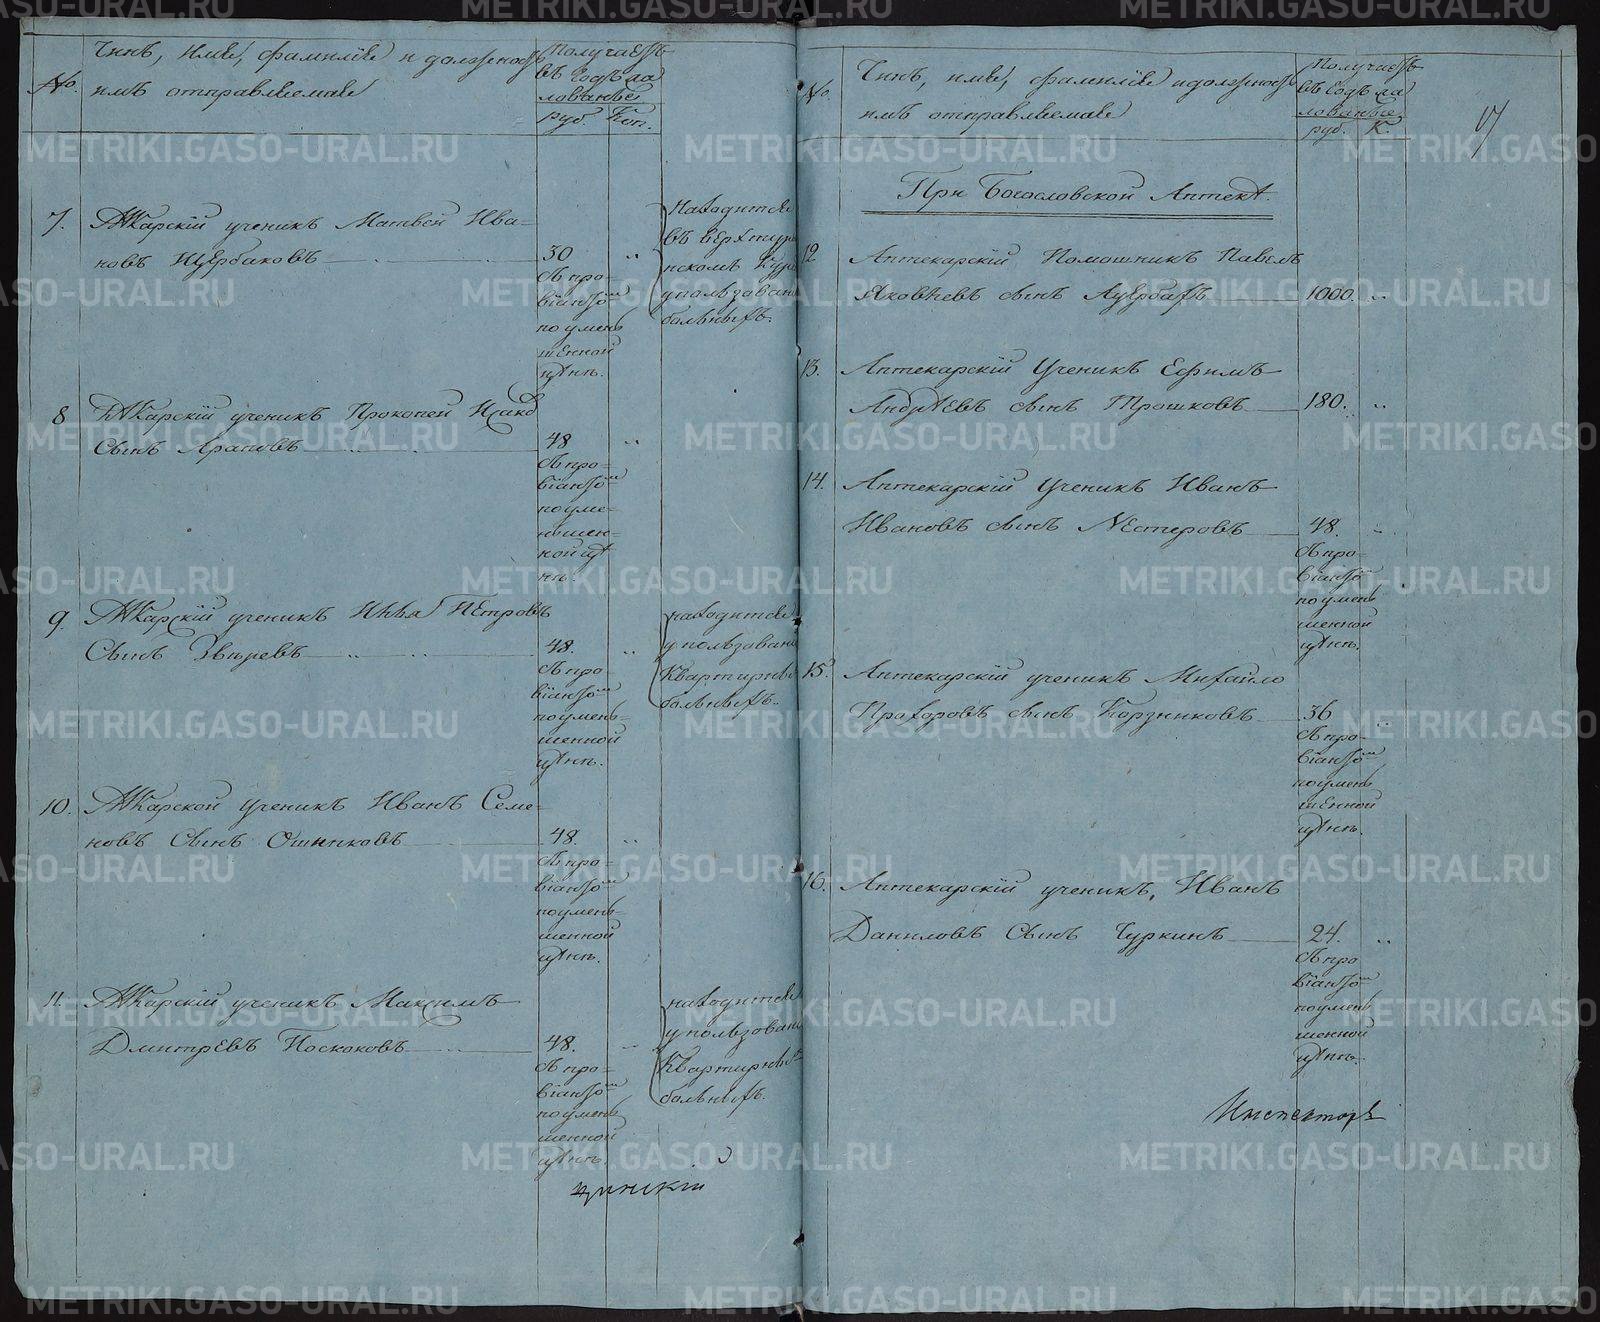 №.
Чинъ, имя, фамилія и должность
имъ отправляемая
Получаетъ
въ годъ жа
лованье
руб. Коп.
7. Лѣкарскій ученикъ Матвей Ива-
новъ Щербаковъ 30 "
съ про-
віантомъ
по умень
шенной
цѣнѣ.
Находится
въ Верхтур
инскомъ
у пользован
больныхъ.
8 Лѣкарскій ученикъ Прокопей
Сынъ Араповъ 48 "
съ про-
віантомъ
по уме-
ньшен-
ной цѣ
нѣ.
9. Лѣкарскій ученикъ Илья Петровъ
Сынъ Звѣревъ 48. "
съ про-
віантомъ
по умень-
шенной
цѣнѣ.
находится
у пользован
Квартирны
больныхъ.
10. Лѣкарской ученикъ Иванъ Семе-
новъ Сынъ 48. "
съ про-
віантомъ
по умень-
шенной
цѣнѣ.
11. Лѣкарскій ученикъ Максимъ
Дмитревъ Поскоковъ 48.
съ про-
віантомъ
по умень
шенной
цѣнѣ.
находится
у пользован
Квартирны
больныхъ.
цинскій
№.
Чинъ, имя, фамилія и должность
имъ отправляемая
Получаетъ
въ годъ жа
лованье
руб. К.
17
При Богословской Аптекѣ.
12 Аптекарскій Помошникъ Павелъ
Яковлевъ сынъ Ауербахъ 1000. "
13. Аптекарскій Ученикъ Ефимъ
Андрѣевъ сынъ Трошковъ 180. "
14. Аптекарскій Ученикъ Иванъ
Ивановъ сынъ Нестеровъ 48. "
съ про-
віантомъ
по умень
шенной
цѣнѣ.
15. Аптекарскій ученикъ Михайло
Прохоровъ сынъ Корзниковъ 36 "
съ про-
віантомъ
по умень
шенной
цѣнѣ.
16. Аптекарскій ученикъ, Иванъ
Даниловъ Сынъ Чуркинъ 24. "
съ про
віантомъ
по умень
шенной
цѣнѣ.
Инспекторъ
METRIKI.GASO-URAL.RU